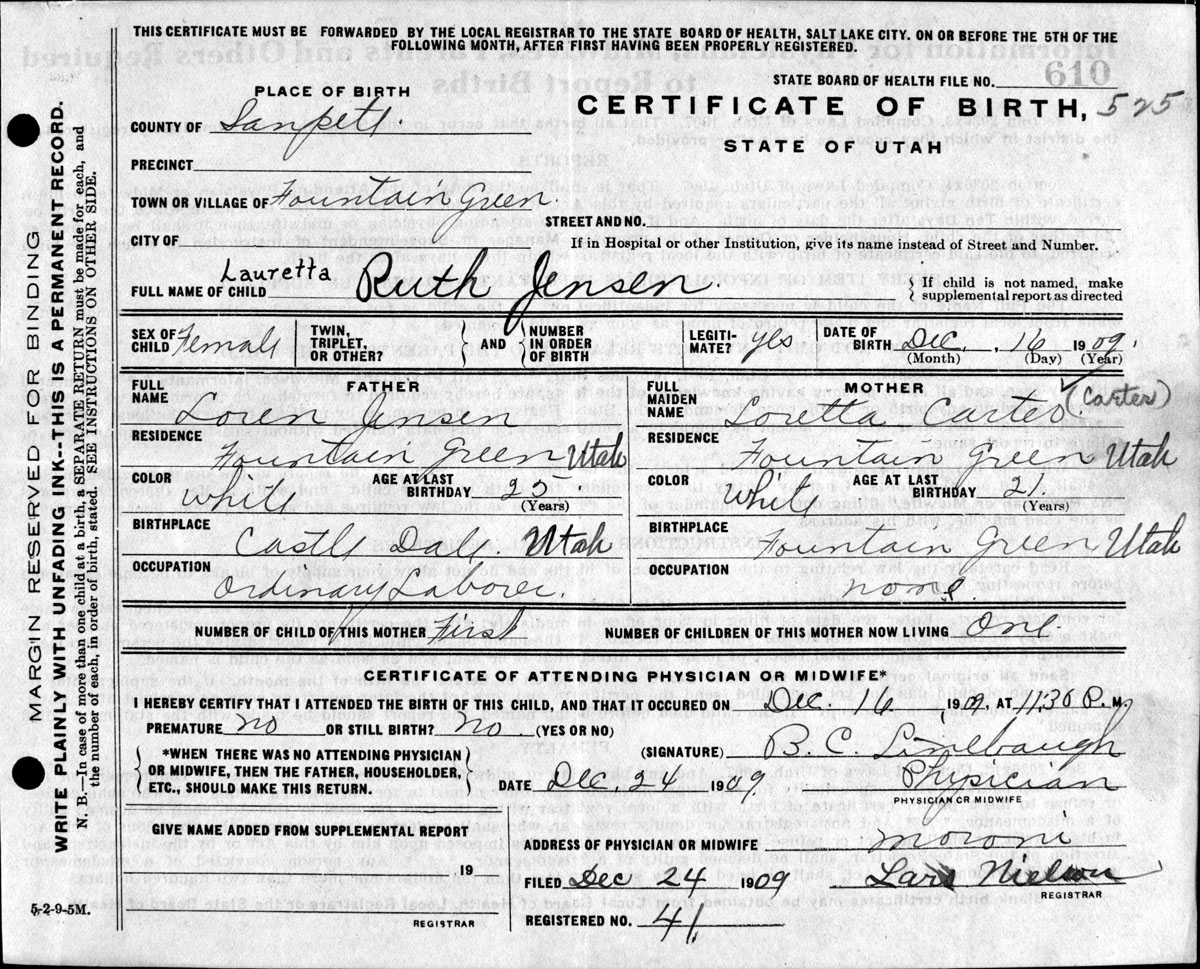 THIS CERTIFICATE MUST BE FORWARDED BY THE LOCAL REGISTRAR TO THE STATE BOARD OF HEALTH, SALT LAKE CITY. ON OR BEFORE THE 5TH OF THE
FOLLOWING MONTH, AFTER FIRST HAVING BEEN PROPERLY REGISTERED.
STATE BOARD OF HEALTH FILE NO. 610
PLACE OF BIRTH
CERTIFICATE OF BIRTH, 525
COUNTY OF Sanpete.
STATE OF UTAH
PRECINCT
TOWN OR VILLAGE OF Fountain Green
STREET AND NO.
CITY OF
If in Hospital or other Institution, give its name instead of Street and Number.
FULL NAME OF CHILD Lauretta Ruth Jensen.
{ If child is not named, make
supplemental report as directed
SEX OF CHILD Female
TWIN, TRIPLET, OR OTHER? } AND { NUMBER IN ORDER OF BIRTH
LEGITI-MATE? yes
DATE OF BIRTH Dec, 16 1909.
(Month) (Day) (Year)
FATHER
FULL NAME Loren Jensen
RESIDENCE Fountain Green Utah
COLOR White AGE AT LAST BIRTHDAY 23 (Years)
BIRTHPLACE Castle Dale. Utah
OCCUPATION Ordinary Laborer.
MOTHER
FULL MAIDEN NAME Loretta Carter. (Carter)
RESIDENCE Fountain Green Utah
COLOR White AGE AT LAST BIRTHDAY 21. (Years)
BIRTHPLACE Fountain Green Utah
OCCUPATION none.
NUMBER OF CHILD OF THIS MOTHER First NUMBER OF CHILDREN OF THIS MOTHER NOW LIVING One.
CERTIFICATE OF ATTENDING PHYSICIAN OR MIDWIFE*
I HEREBY CERTIFY THAT I ATTENDED THE BIRTH OF THIS CHILD, AND THAT IT OCCURED ON Dec. 16 1909, AT 11:30 P. M.
PREMATURE no OR STILL BIRTH? no (YES OR NO)
(SIGNATURE) B. C. Linebaugh
{ *WHEN THERE WAS NO ATTENDING PHYSICIAN
OR MIDWIFE, THEN THE FATHER, HOUSEHOLDER,
ETC., SHOULD MAKE THIS RETURN. }
DATE Dec, 24 1909. Physician
PHYSICIAN OR MIDWIFE
GIVE NAME ADDED FROM SUPPLEMENTAL REPORT
ADDRESS OF PHYSICIAN OR MIDWIFE Moroni
19
FILED Dec 24 1909 Lars Nielson
REGISTRAR
REGISTERED NO. 41.
5-2-9-5M.
REGISTRAR
MARGIN RESERVED FOR BINDING
WRITE PLAINLY WITH UNFADING INK--THIS IS A PERMANENT RECORD.
N. B.—In case of more than one child at a birth, a SEPARATE RETURN must be made for each, and
the number of each, in order of birth, stated. SEE INSTRUCTIONS ON OTHER SIDE.